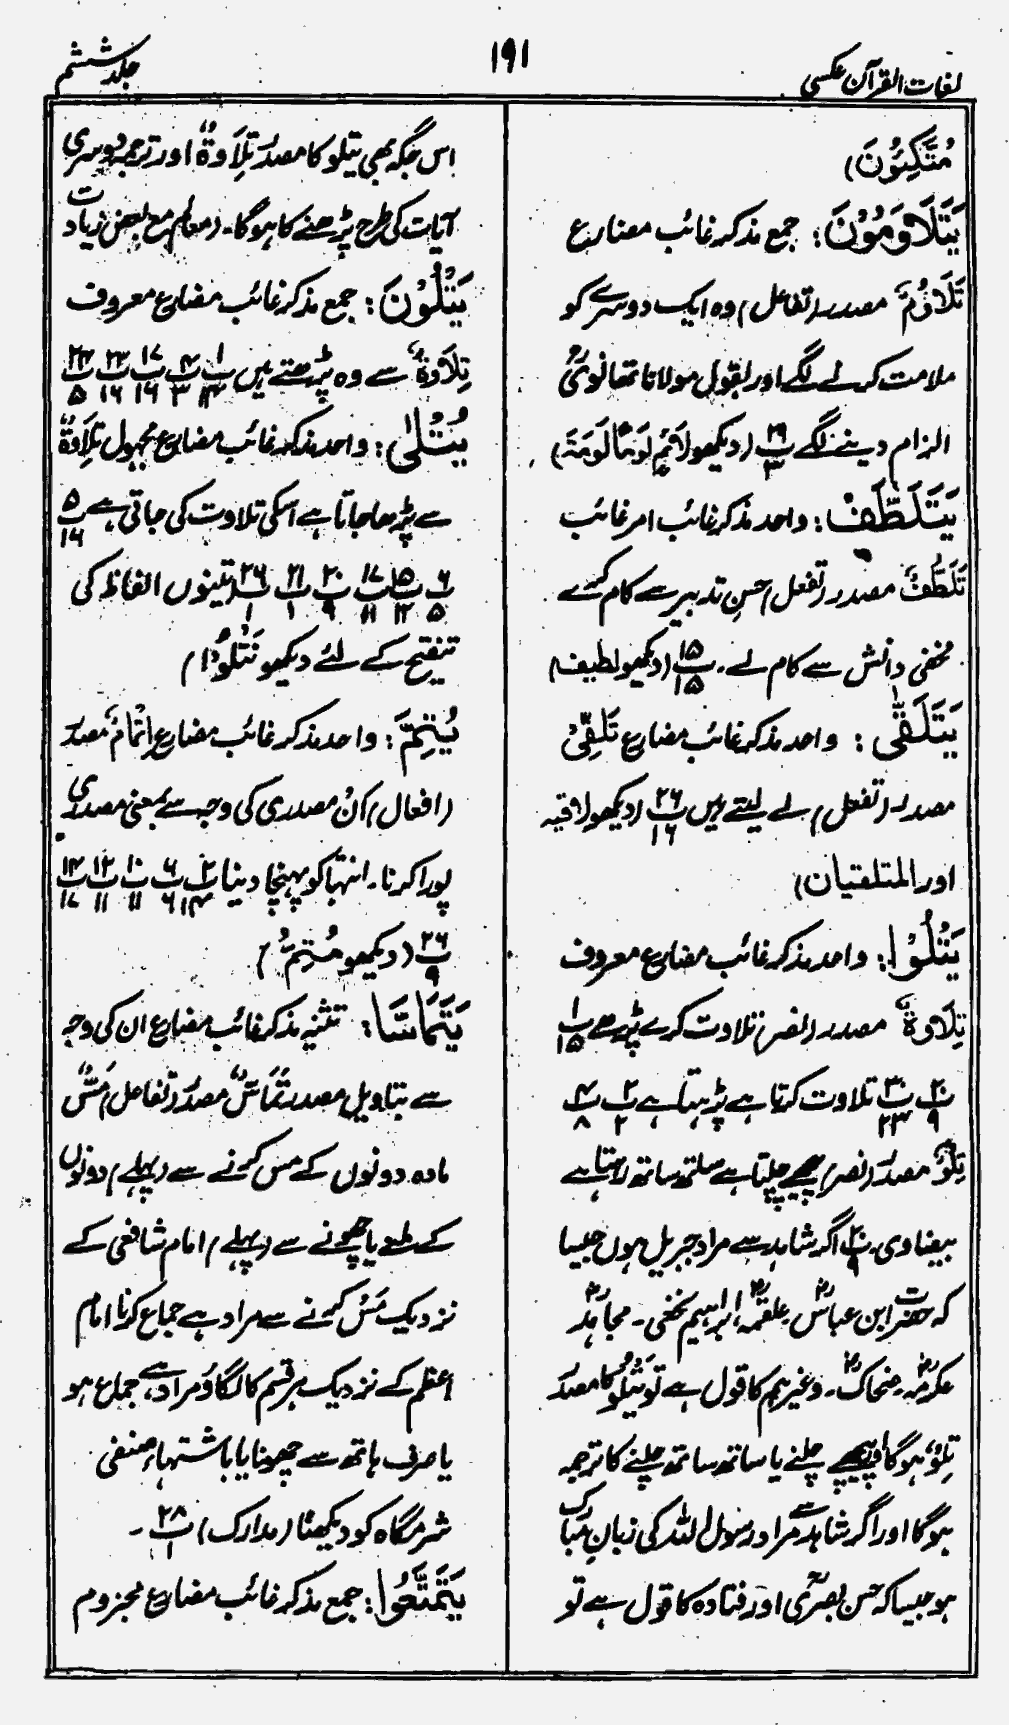 لغات القرآن عکسی
۱۹۱
جلد ششم
مُتَّكِئُونَ)
يَتَلَاوَمُوْنَ: جمع مذکر غائب مضارع
تَلَاوُمٌ مصدر (تفاعل) وہ ایک دوسرے کو
ملامت کرنے لگے اور بقول مولانا تھانویؒ
الزام دینے لگے پ۲۹/۳ (دیکھو لَائِمٍ لَوْمًا لَوْمَۃَ)
يَتَلَطَّفْ: واحد مذکر غائب امر غائب
تَلَطُّفٌ مصدر (تفعل) حسن تدبیر سے کام کرے
مخفی دانش سے کام لے۔ پ۱۵/۱۵ (دیکھو لطیف)
يَتَلَقّٰى: واحد مذکر غائب مضارع تَلَقِّیْ
مصدر (تفعل) لے لیتے ہیں پ۲۶/۱۶ (دیکھو لاقیہ
اور المتلقیان)
يَتْلُوْا: واحد مذکر غائب مضارع معروف
تِلَاوۃٌ مصدر (نصر) تلاوت کرے پڑھے پ۱/۱۵
پ۲۰/۹ پ۳۰/۲۳ تلاوت کرتا ہے پڑہتا ہے پ۲/۲ پ۴/۸
تِلْوٌ مصدر (نصر) پیچھے چلتا ہے ساتھ ساتھ رہتا ہے
بیضاوی۔ اگر شاہد سے مراد جبریل ہوں جیسا
کہ حضرت ابن عباسؓ علقمہؒ ابراہیم نخعی۔ مجاہدؒ
عکرمہؒ ضحاکؒ۔ وغیرہم کا قول ہے تو یَتْلُوْ کا مصدر
تِلْوٌ ہوگا اور پیچھے چلنے یا ساتھ ساتھ چلنے کا ترجمہ
ہوگا اور اگر شاہد سے مراد رسول اللہ کی زبان مبارک
ہو جیسا کہ حسن بصریؒ اور قتادہ کا قول ہے تو
اس جگہ بھی یتلو کا مصدر تِلَاوۃٌ اور ترجمہ دوسری
آیات کی طرح پڑھنے کا ہوگا۔ (معالم مع بعض زیادت
يَتْلُوْنَ: جمع مذکر غائب مضارع معروف
تِلَاوۃٌ سے وہ پڑھتے ہیں پ۱/۱۴ پ۴/۳ پ۱۷/۱۶ پ۲۲/۱۶ پ۲۴/۵
يُتْلٰى: واحد مذکر غائب مضارع مجہول تِلَاوۃٌ
سے پڑھا جاتا ہے اسکی تلاوت کی جاتی ہے پ۵/۱۶
پ۶/۵ پ۱۵/۱۲ پ۱۷/۱۱ پ۲۰/۹ پ۲۱/۱ پ۲۶/۱ (تینوں الفاظ کی
تنقیح کے لئے دیکھو نَتْلُوْا)
يُتِمَّ: واحد مذکر غائب مضارع اِتْمَامٌ مصدر
(افعال) اَنْ مصدری کی وجہ سے بمعنی مصدری
پورا کرنا۔ انتہا کو پہنچا دینا پ۲/۱۴ پ۶/۶ پ۱۰/۱۱ پ۱۲/۱۱ پ۱۴/۱۷
پ۲۶/۹ (دیکھو مُتِمُّ)
يَتَمَاسَّا: تثنیہ مذکر غائب مضارع ان کی وجہ
سے بتاویل مصدر تَمَاسٌّ مصدر (تفاعل) مَسٌّ
مادہ۔ دونوں کے مس کرنے سے (پہلے) دونوں
کے ملنے یا چھونے سے (پہلے) امام شافعی کے
نزدیک مَسْ کرنے سے مراد ہے جماع کرنا امام
اعظم کے نزدیک ہر قسم کا لگاؤ مراد ہے، جماع ہو
یا صرف ہاتھ سے چھونا یا باشتہاء صنفی
شرمگاہ کو دیکھنا (مدارک) پ۲۸/۱۔
يَتَمَتَّعُوا: جمع مذکر غائب مضارع مجزوم